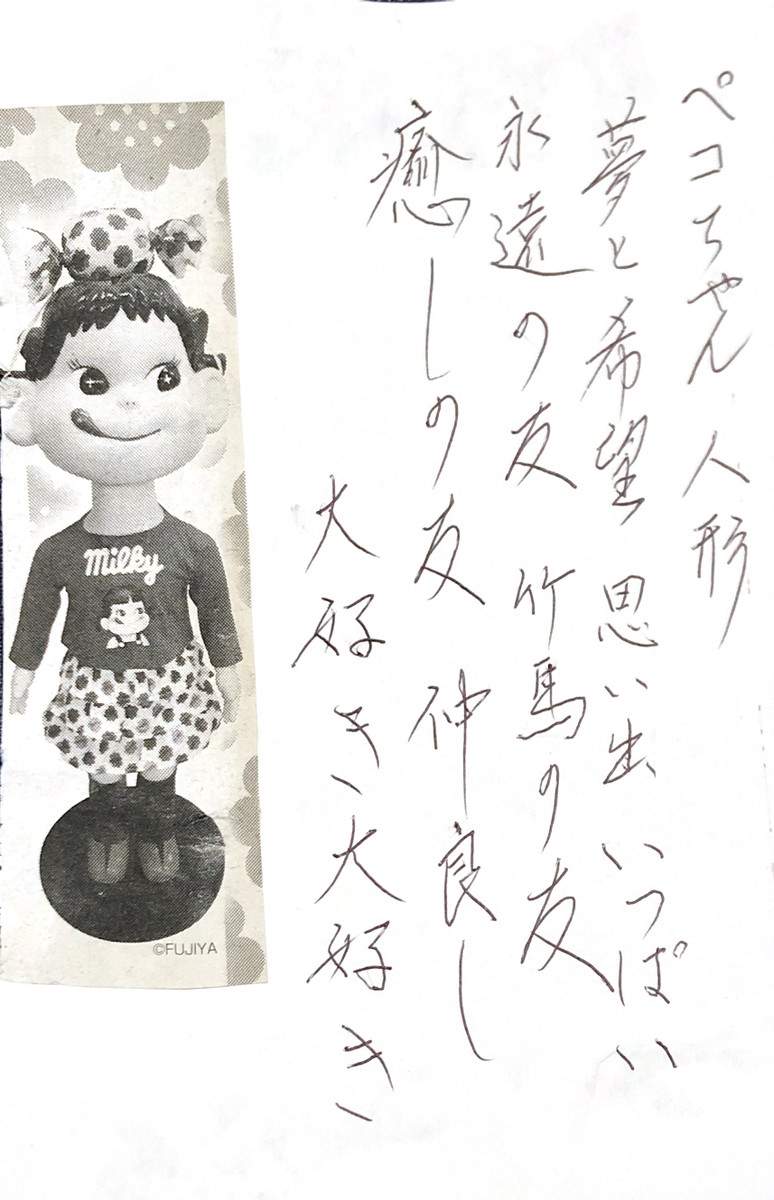 ペコちゃん 人形
夢と希望 思い出 いっぱい
永遠の友 竹馬の友
癒しの友 仲良し
大好き、大好き、
milky
©FUJIYA